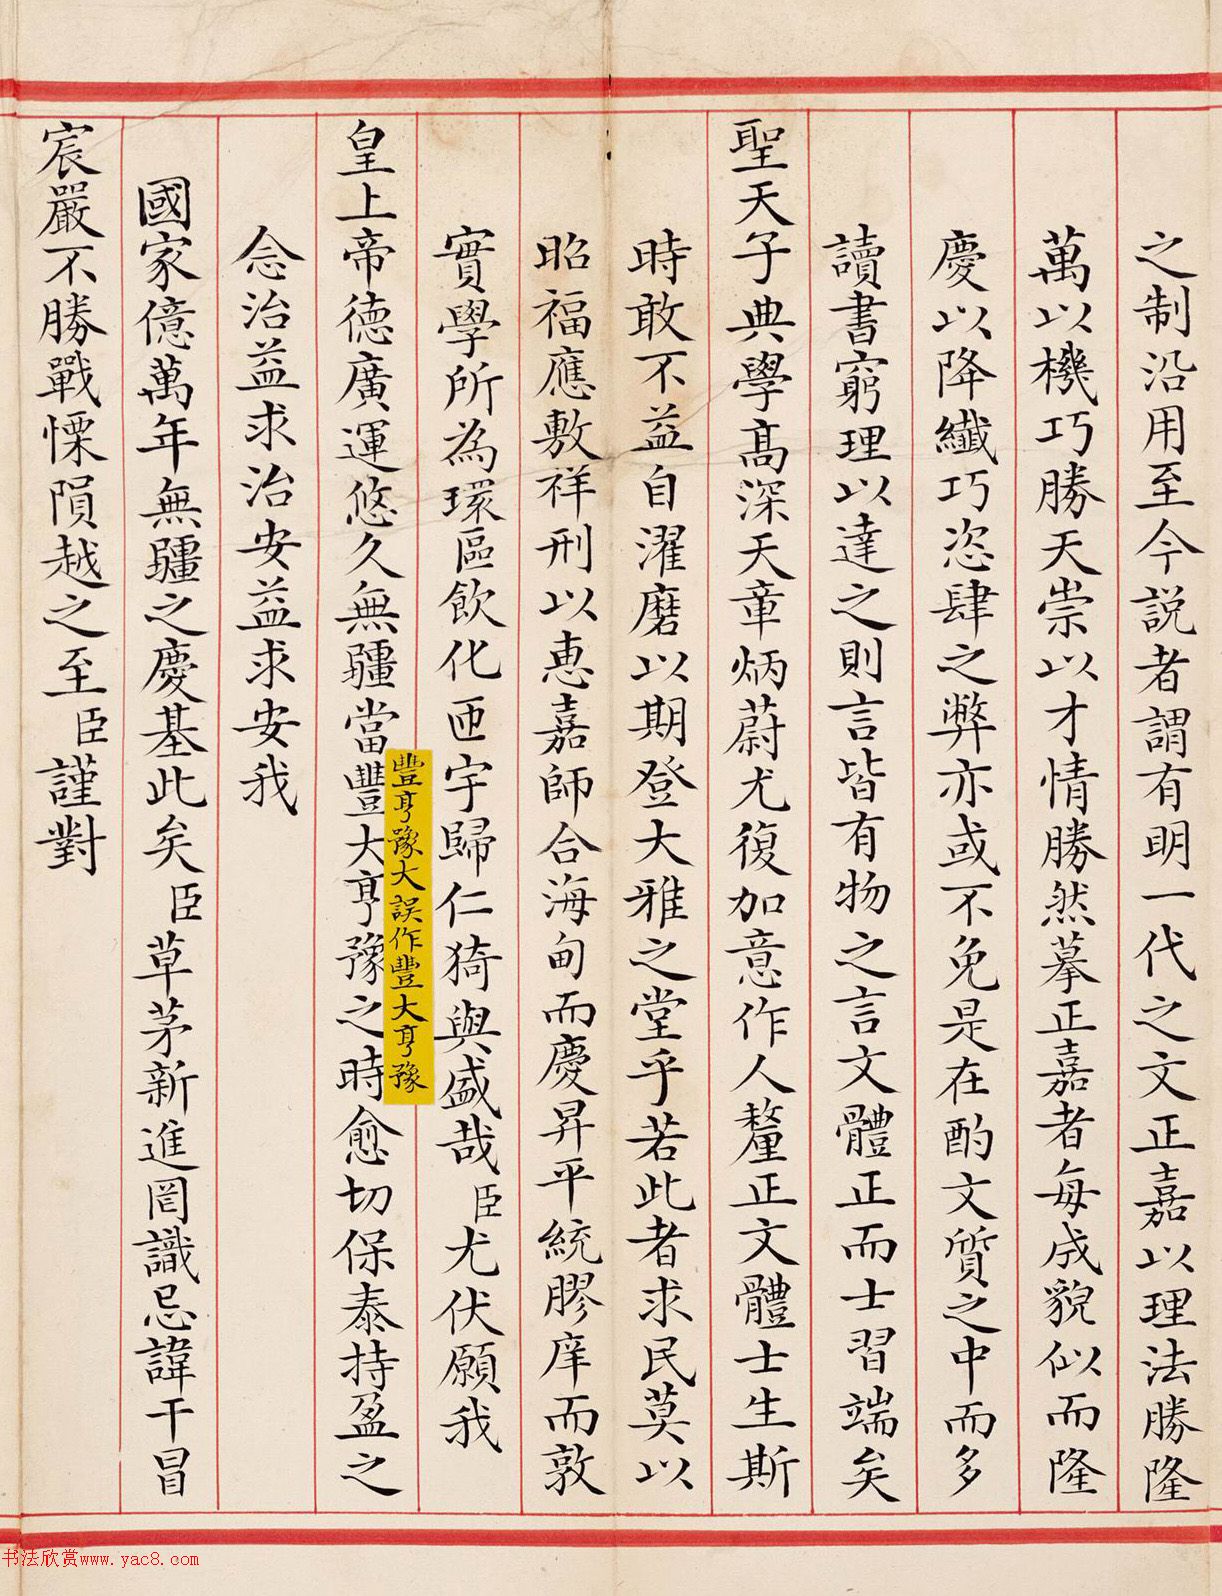 之制沿用至今説者謂有明一代之文正嘉以理法勝隆
萬以機巧勝天崇以才情勝然摹正嘉者每成貌似而隆
慶以降纖巧恣肆之弊亦或不免是在酌文質之中而多
讀書窮理以達之則言皆有物之言文體正而士習端矣
聖天子典學高深天章炳蔚尤復加意作人釐正文體士生斯
時敢不益自濯磨以期登大雅之堂乎若此者求民莫以
昭福應敷祥刑以惠嘉師合海甸而慶昇平統膠庠而敦
實學所為環區飲化匝宇歸仁猗與盛哉臣尤伏願我
皇上帝德廣運悠久無疆當豐大亨豫之時愈切保泰持盈之
豐亨豫大誤作豐大亨豫
念治益求治安益求安我
國家億萬年無疆之慶基此矣臣草茅新進罔識忌諱干冒
宸嚴不勝戰慄隕越之至臣謹對
书法欣赏www.yac8.com